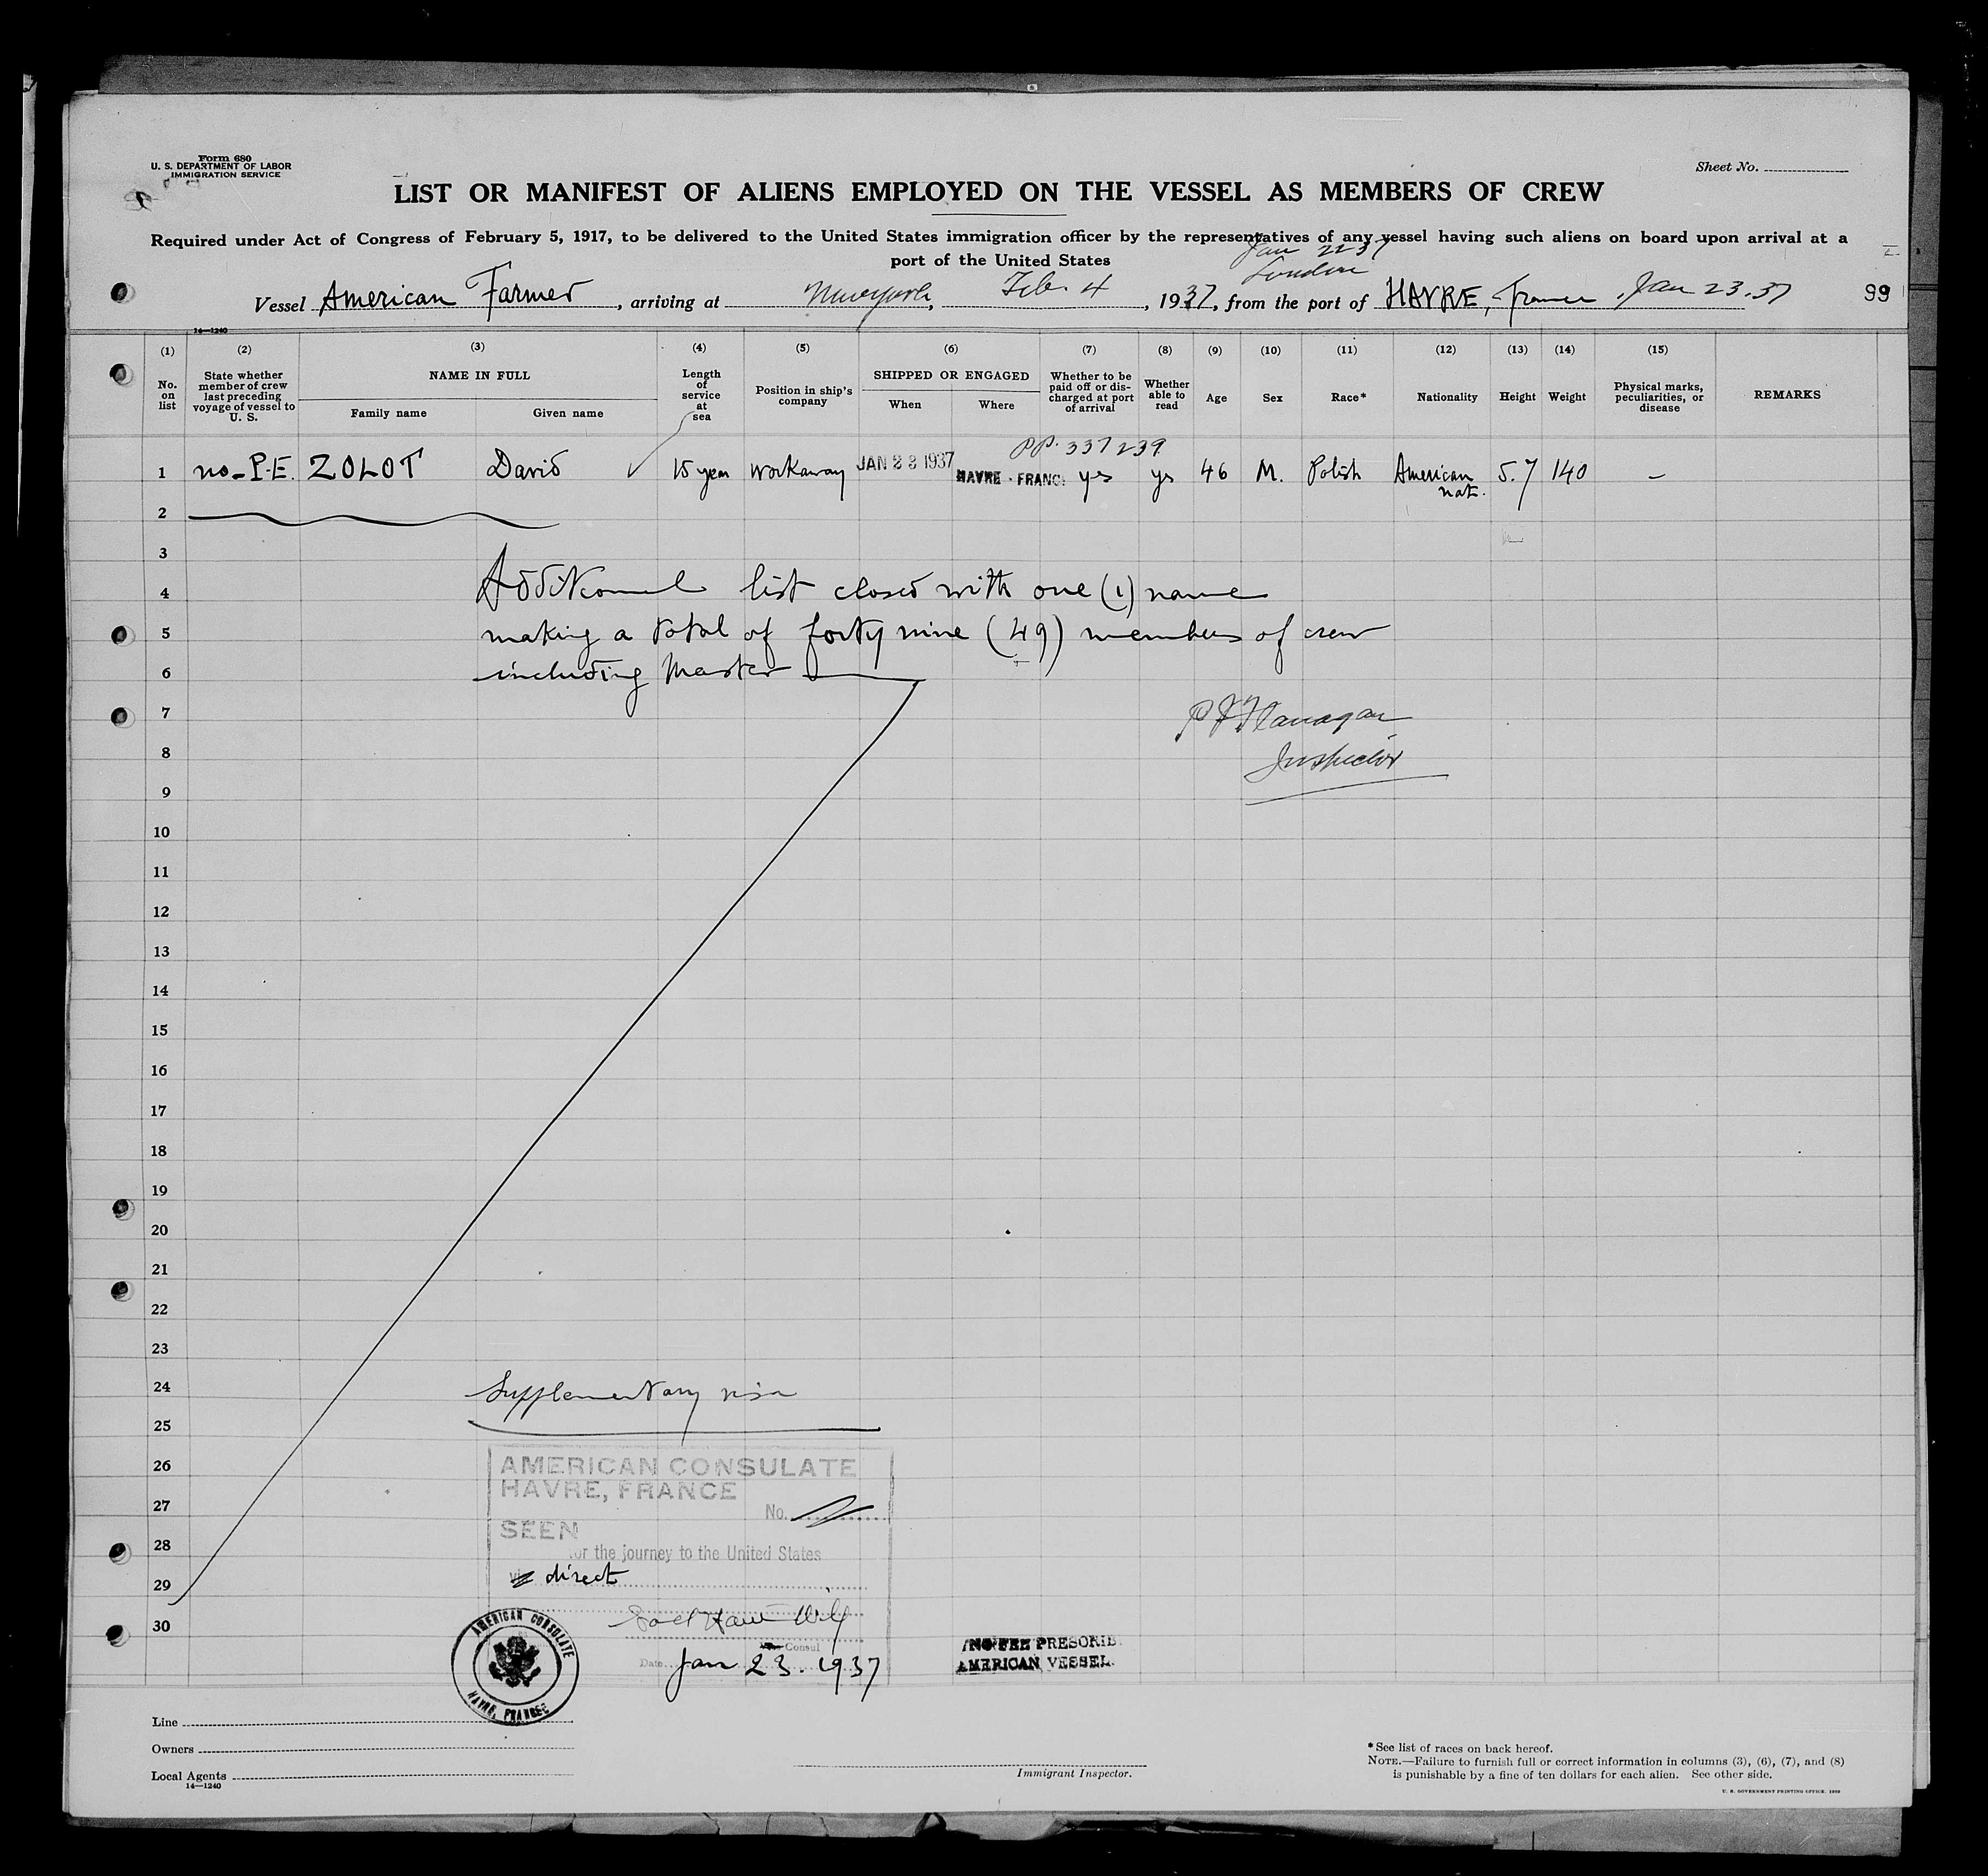 Form 680
U. S. DEPARTMENT OF LABOR
IMMIGRATION SERVICE
Sheet No.
LIST OR MANIFEST OF ALIENS EMPLOYED ON THE VESSEL AS MEMBERS OF CREW
Required under Act of Congress of February 5, 1917, to be delivered to the United States immigration officer by the representatives of any vessel having such aliens on board upon arrival at a
port of the United States
Jan 22 37
London
Vessel American Farmer, arriving at New York, Feb. 4, 1937, from the port of HAVRE, France, Jan 23.37
99
14—1240
(1) (2) (3) (4) (5) (6) (7) (8) (9) (10) (11) (12) (13) (14) (15)
No. on list
State whether member of crew last preceding voyage of vessel to U. S.
NAME IN FULL
Family name
Given name
Length of service at sea
Position in ship's company
SHIPPED OR ENGAGED
When
Where
Whether to be paid off or discharged at port of arrival
Whether able to read
Age
Sex
Race*
Nationality
Height
Weight
Physical marks, peculiarities, or disease
REMARKS
PP. 337239
1 no-P.E. ZOLOT David 15 year Workaway JAN 23 1937 HAVRE - FRANC. yes yes 46 M. Polish American nat. 5.7 140 –
2
3
4 Additional list closed with one (1) name
5 making a total of forty nine (49) members of crew
6 including Master
7 P F Flanagan
8 Inspector
9
10
11
12
13
14
15
16
17
18
19
20
21
22
23
24 Supplementary visa
25
26 AMERICAN CONSULATE
27 HAVRE, FRANCE
No.
SEEN
28 for the journey to the United States
29 via direct
30
Consul
Date Jan 23. 1937
AMERICAN CONSULATE
HAVRE, FRANCE
NO FEE PRESCRIB
AMERICAN VESSEL.
Line
Owners
Local Agents
14—1240
Immigrant Inspector.
* See list of races on back hereof.
NOTE.—Failure to furnish full or correct information in columns (3), (6), (7), and (8)
is punishable by a fine of ten dollars for each alien. See other side.
U. S. GOVERNMENT PRINTING OFFICE. 1929